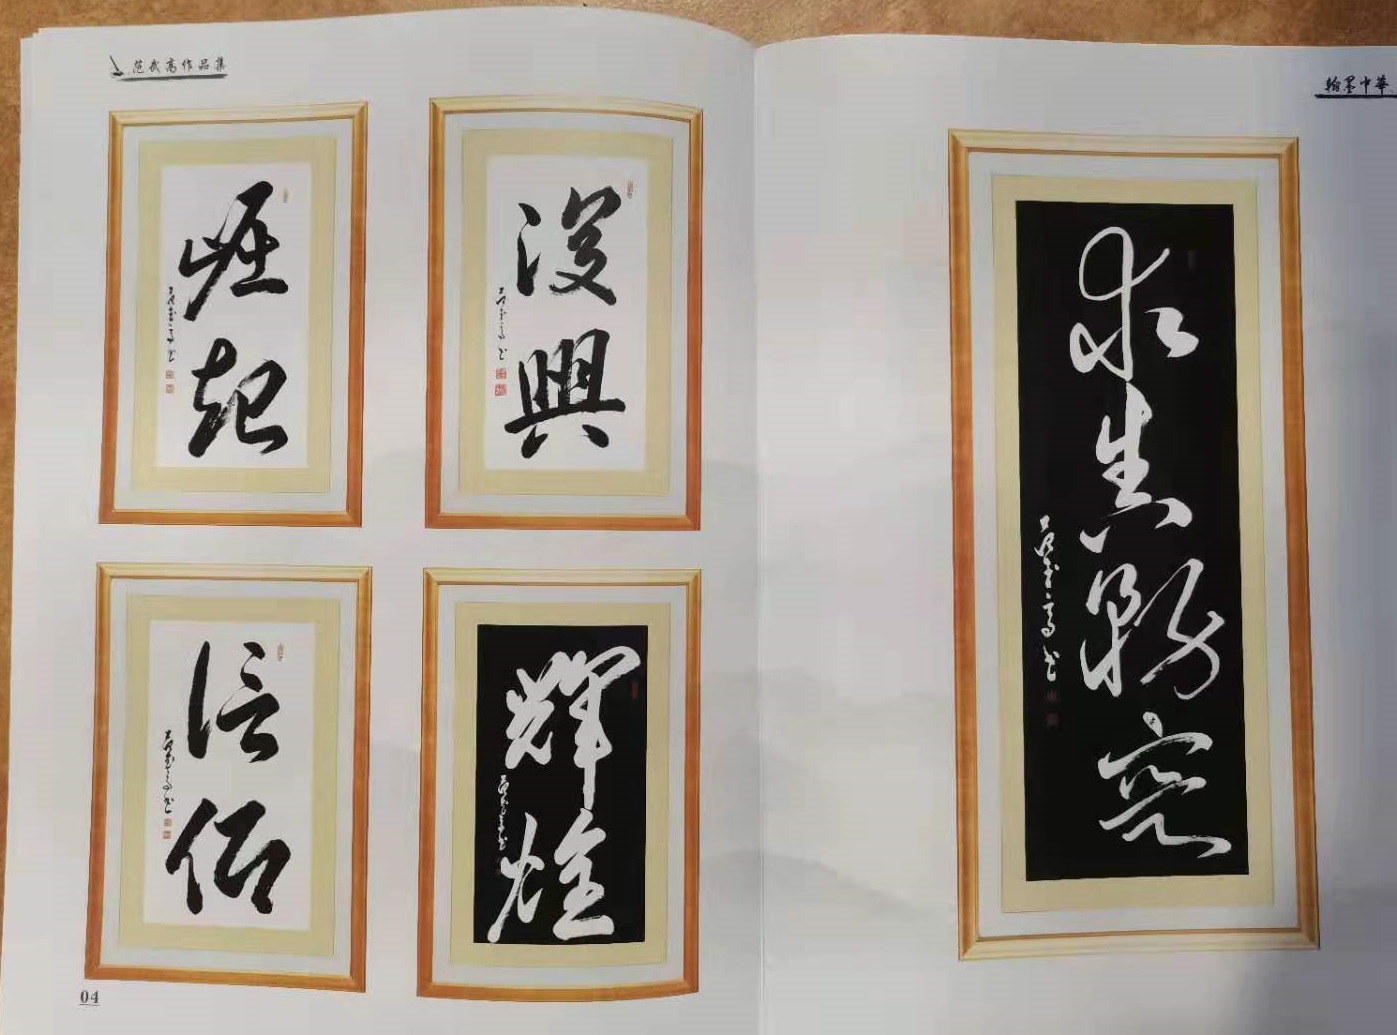 范武高作品集
崛起
范武高书
復興
范武高书
信仰
范武高书
輝煌
范武高书
04
翰墨中華
求真務实
范武高书